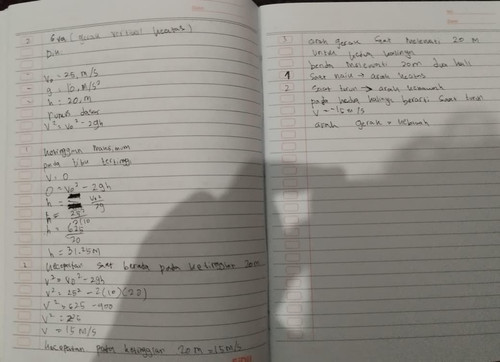 2. GVA (gerak vertikal keatas)
Dik
- V₀ = 25 m/s
- g = 10 m/s²
- h = 20 m
rumus dasar
V² = V₀² - 2gh
1 ketinggian maksimum
pada titik tertinggi
V = 0
0 = V₀² - 2gh
h = V₀²/2g
h = 25²/2.10
h = 625/20
h = 31.25 M
2. kecepatan saat berada pada ketinggian 20m
V² = V₀² - 2gh
V² = 25² - 2(10)(20)
V² = 625 - 400
V² =
V = 15 M/s
kecepatan pada ketinggian 20 M = 15 M/s
3 arah gerak saat melewati 20 M
untuk kedua kalinya
benda melewati 20m dua kali
1 saat naik → arah keatas
2 saat turun → arah kebawah
pada kedua kalinya berarti saat turun
V = -15 m/s
arah gerak = kebawah